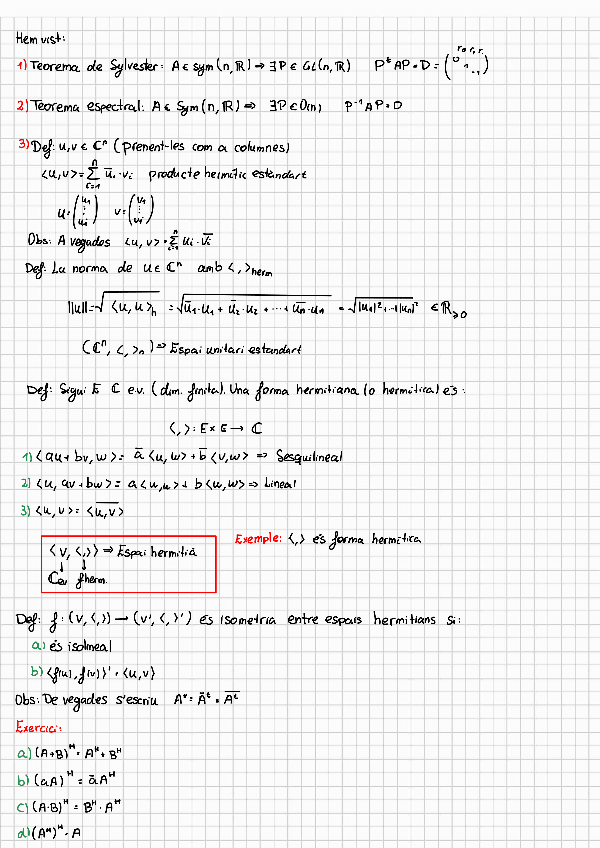 Hem vist:
1) Teorema de Sylvester: A ∈ Sym(n, ℝ) ⇒ ∃P ∈ GL(n, ℝ) PᵗAP = D =
2) Teorema espectral: A ∈ Sym(n, ℝ) ⇒ ∃P ∈ O(n) P⁻¹AP = D
3) Def: u, v ∈ ℂⁿ (prenent-les com a columnes)
<u, v> = Σ ū_i · v_i producte hermític estàndart
u = (u₁ ⋮ u_i) v = (v₁ ⋮ v_i)
Obs: A vegades <u, v> = Σ u_i · v̄_i
Def: La norma de u ∈ ℂⁿ amb < , >herm
||u|| = √<u, u>_h = √(ū₁·u₁ + ū₂·u₂ + ··· + ū_n·u_n) = √(|u₁|² + ··· + |u_n|²) ∈ ℝ≥0
(ℂⁿ, < , >_h) => Espai unitari estandart
Def: Sigui E ℂ e.v. (dim. finita). Una forma hermitiana (o hermítica) és:
< , > : E × E → ℂ
1) <au + bv, w> = ā <u, w> + b̄ <v, w> => Sesquilineal
2) <u, av + bw> = a <u, u> + b <u, w> => Lineal
3) <u, v> = \overline{<u, v>}
(V, <,>) => Espai hermitià
ℂev fherm.
Exemple: <,> és forma hermítica
Def: f: (V, <,>) → (V', <,>') és isometria entre espais hermitians si:
a) és isolineal
b) <f(u), f(v)>' = <u, v>
Obs: De vegades s'escriu A* = Āᵗ = \overline{Aᵗ}
Exercici:
a) (A+B)ᴴ = Aᴴ + Bᴴ
b) (aA)ᴴ = āAᴴ
c) (A·B)ᴴ = Bᴴ · Aᴴ
d) (Aᴴ)ᴴ = A